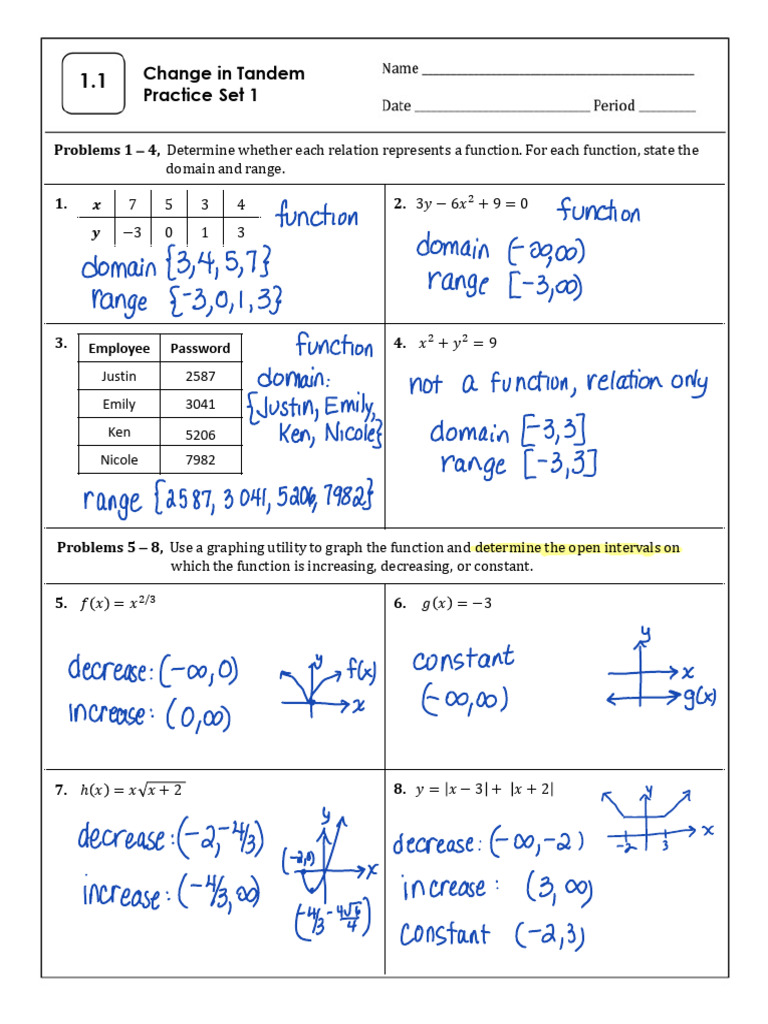 1.1
Change in Tandem
Practice Set 1
Name
Date Period
Problems 1 – 4, Determine whether each relation represents a function. For each function, state the
domain and range.
1. x 7 5 3 4
y −3 0 1 3
function
domain {3,4,5,7}
range {-3,0,1,3}
2. 3y − 6x² + 9 = 0
function
domain (-∞,∞)
range [-3,∞)
3. Employee Password
Justin 2587
Emily 3041
Ken 5206
Nicole 7982
function
domain:
{Justin, Emily,
Ken, Nicole}
range {2587, 3041, 5206, 7982}
4. x² + y² = 9
not a function, relation only
domain [-3,3]
range [-3,3]
Problems 5 – 8, Use a graphing utility to graph the function and determine the open intervals on
which the function is increasing, decreasing, or constant.
5. f(x) = x^(2/3)
decrease: (-∞,0)
increase: (0,∞)
y f(x)
x
6. g(x) = −3
constant
(-∞,∞)
y
x
g(x)
7. h(x) = x√(x + 2)
decrease: (-2,-4/3)
increase: (-4/3,∞)
y
(-2,0)
x
(-4/3, -4√6/4)
8. y = |x − 3| + |x + 2|
y
x
-2 3
decrease: (-∞,-2)
increase: (3,∞)
constant (-2,3)